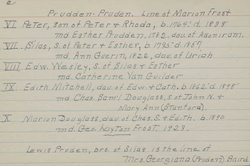 Prudden-Pruden. Line of Marion Frost
VI Peter, son of Peter + Rhoda, b.
md Esther Prudden, dau. of
VII Silas, S of Peter + Esther, b.
md Ann Guerin, 1822, dau of Uriah
VIII Edw Wesley, S of Silas + Esther
md Catherine Van Gulder
IX Edith Mitchell, dau of Edw + Cath. b.
md Chas. Douglass, S of John K +
Mary Ann (Stanford)
X Marion Douglass, dau of Chas. S + Edith, b. 1890
md Geo. Frost, 1923.
Lewis Pruden, bro of Silas is the line of
Mrs. Georgiana (Pruden) Baird